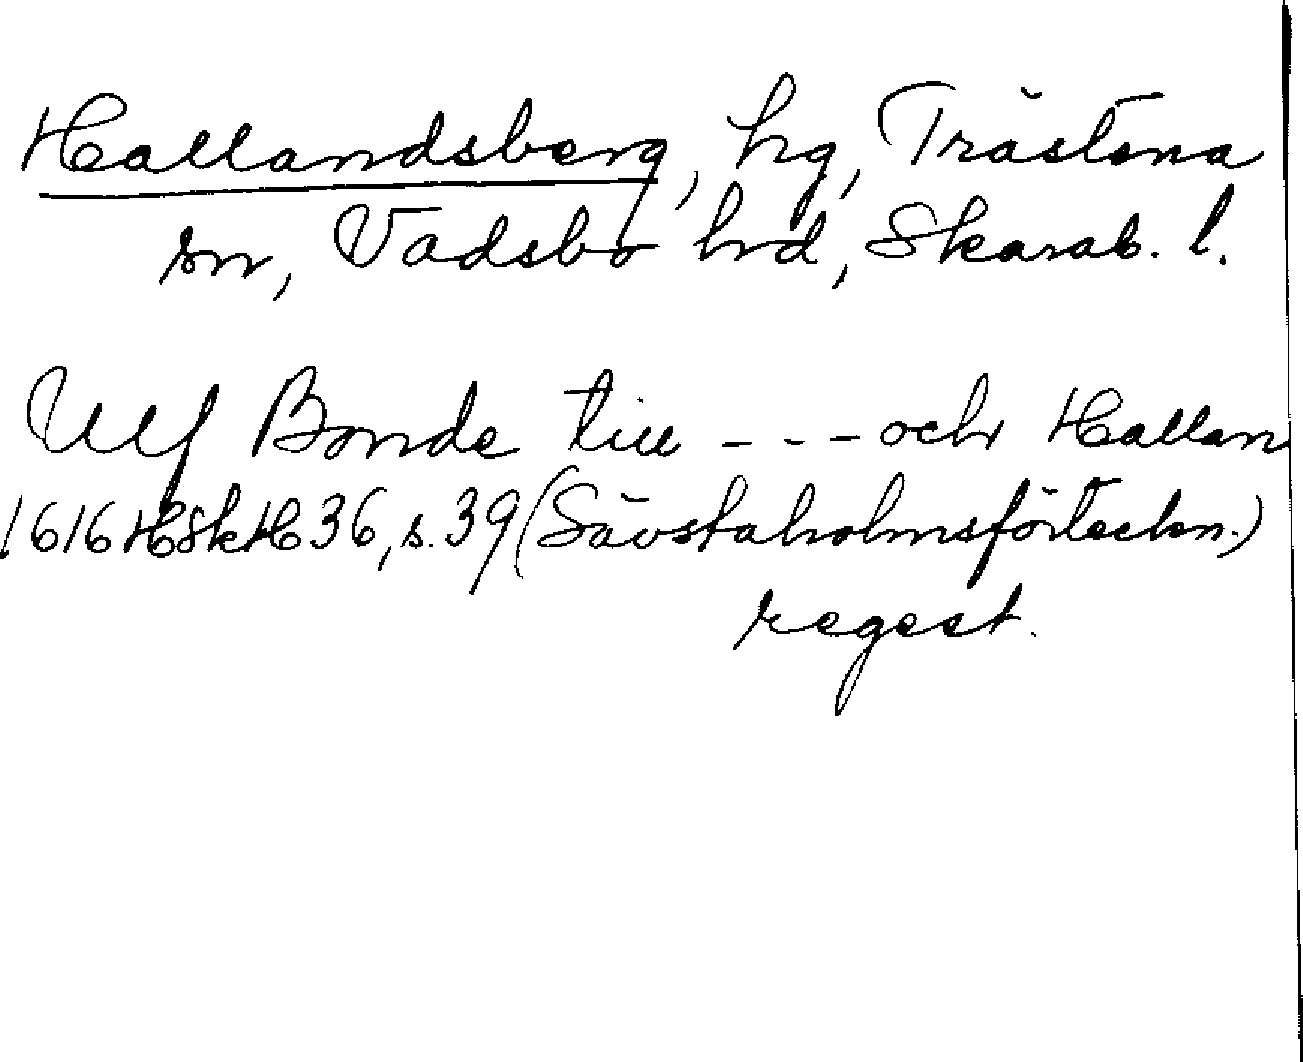 Hallandsberg, hg, Trästena
sn, Vadsbo hd, Skarab. l.
Ulf Bonde till - - - och Hallan
1616 HSkH 36, s. 39 (Sävstaholmsförteckn.)
regest.